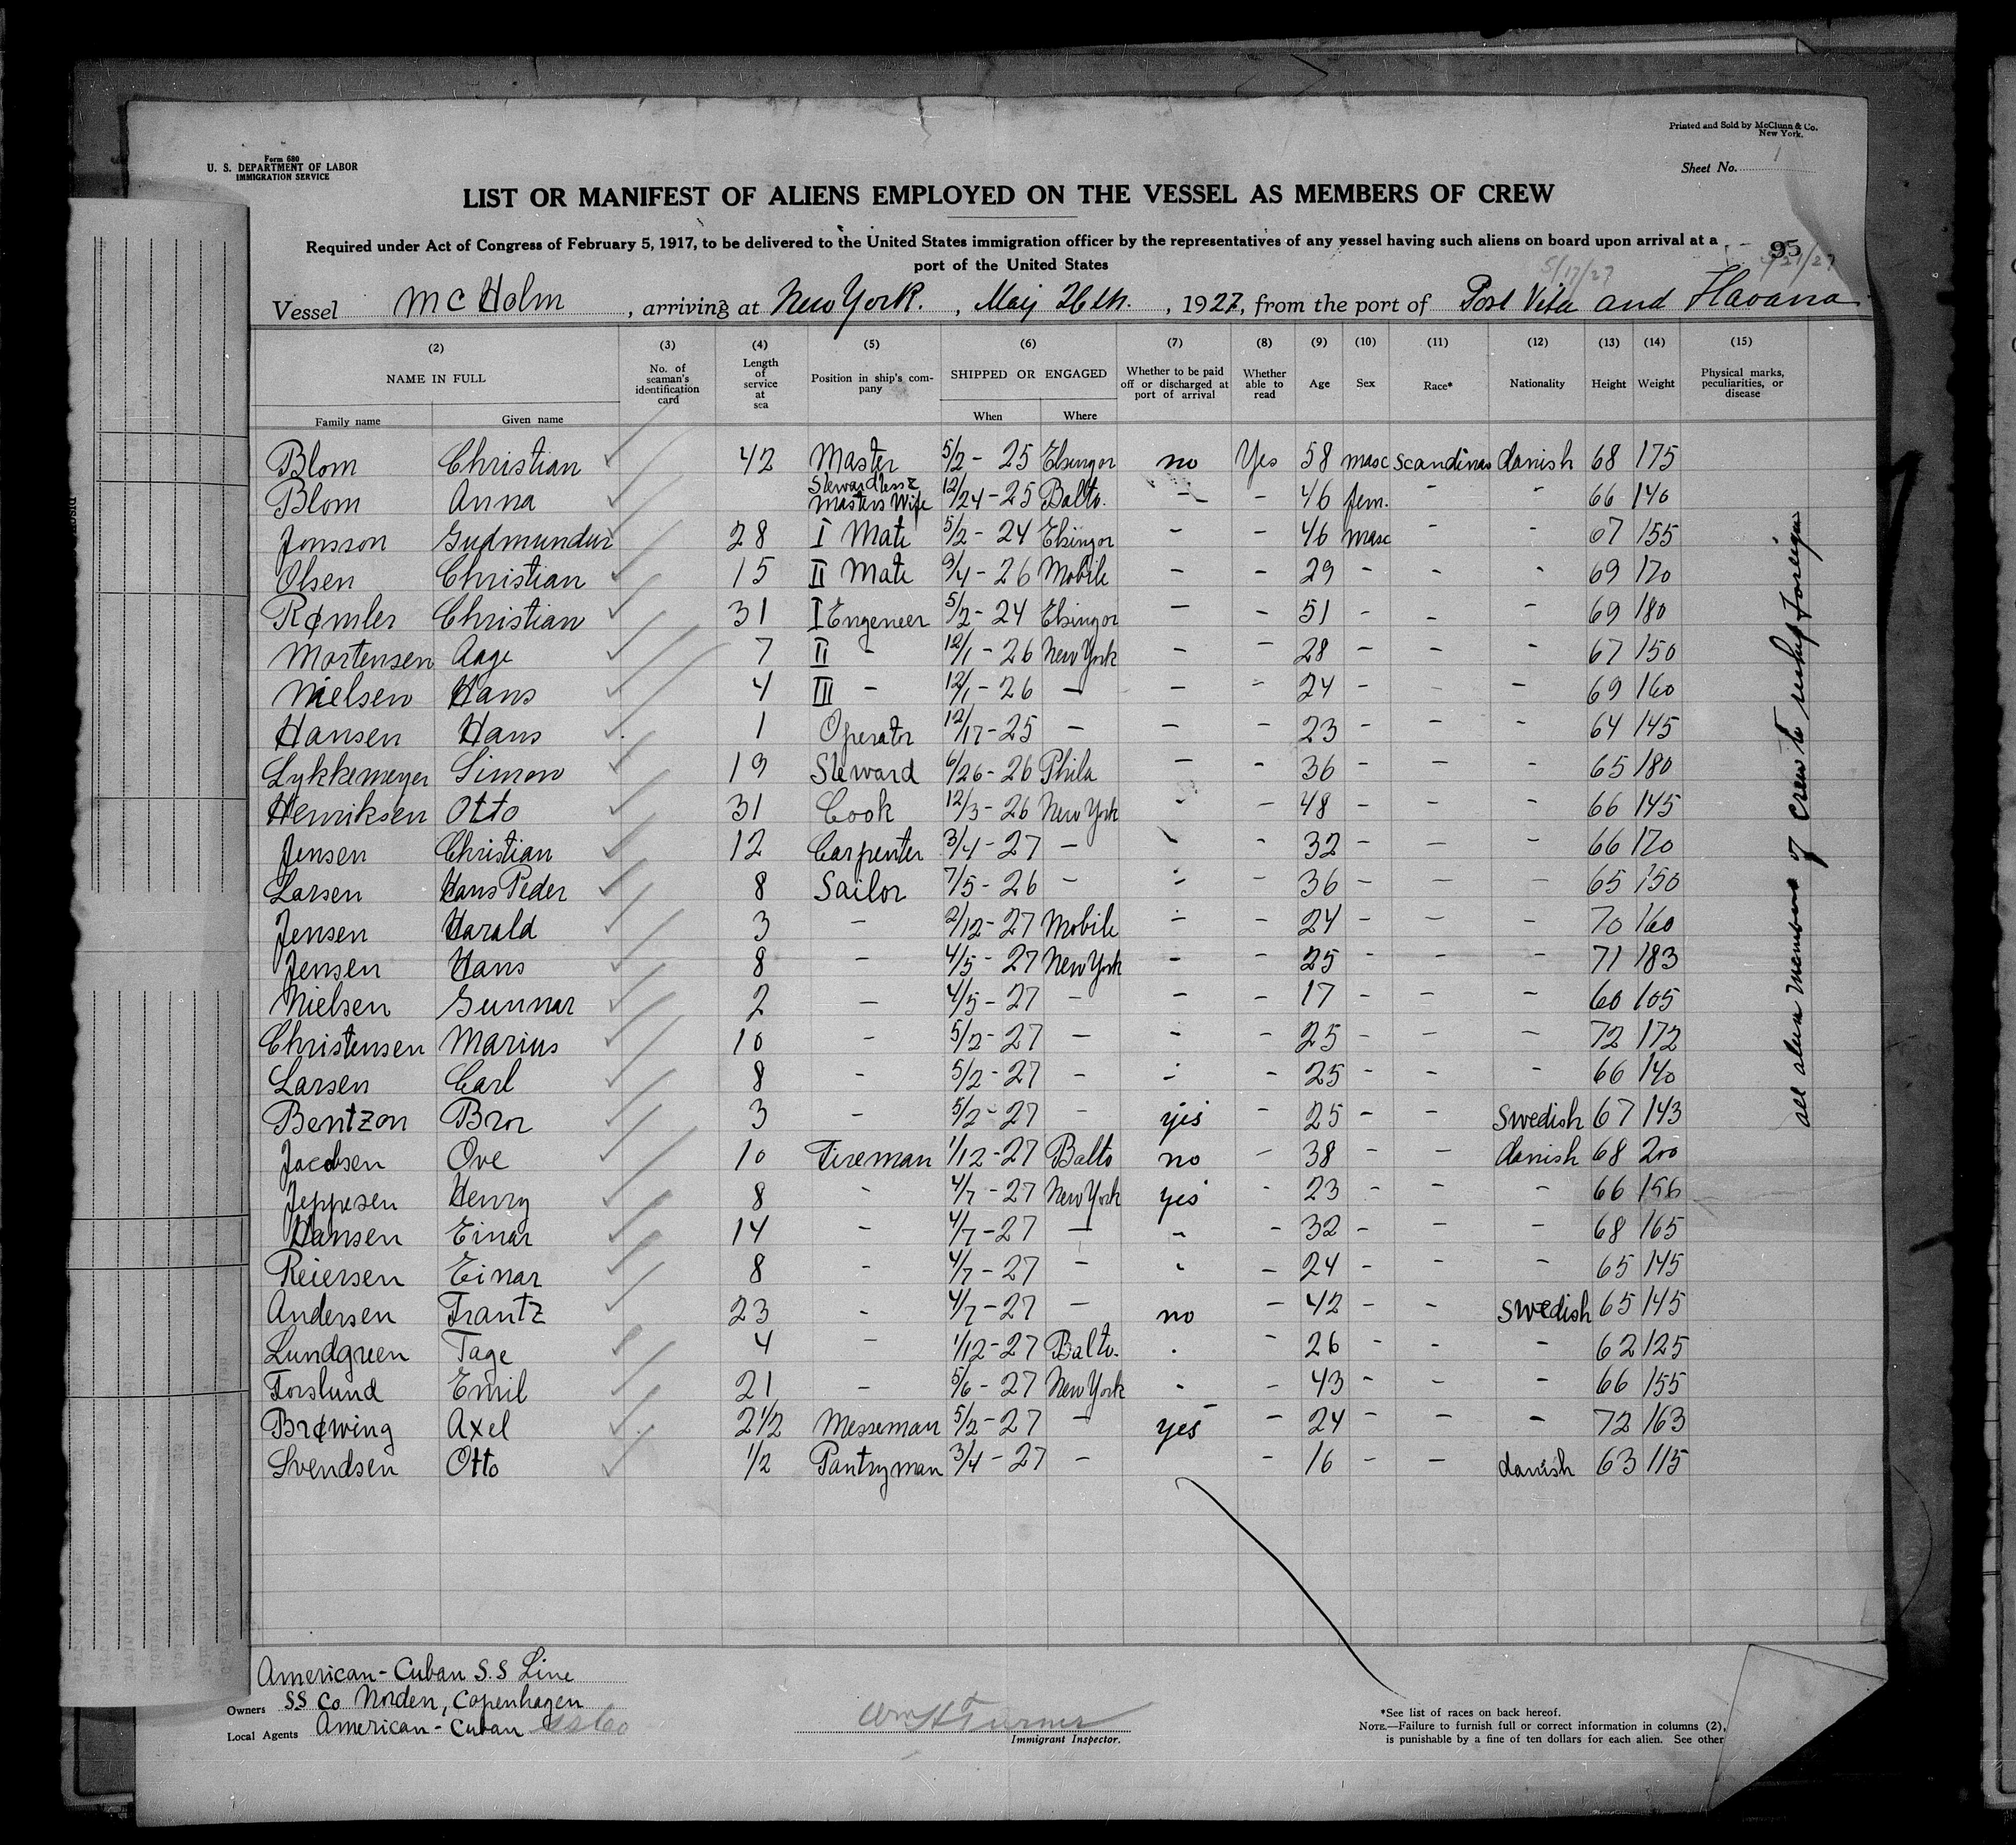 Printed and Sold by McClunn & Co.
New York.
Form 680
U. S. DEPARTMENT OF LABOR
IMMIGRATION SERVICE
Sheet No. 1
LIST OR MANIFEST OF ALIENS EMPLOYED ON THE VESSEL AS MEMBERS OF CREW
Required under Act of Congress of February 5, 1917, to be delivered to the United States immigration officer by the representatives of any vessel having such aliens on board upon arrival at a
port of the United States
95
5/17/27
Vessel Mc Holm, arriving at New York., May 26th., 1927, from the port of Port Vita and Havana
(2) (3) (4) (5) (6) (7) (8) (9) (10) (11) (12) (13) (14) (15)
NAME IN FULL No. of seaman's identification card Length of service at sea Position in ship's company SHIPPED OR ENGAGED Whether to be paid off or discharged at port of arrival Whether able to read Age Sex Race* Nationality Height Weight Physical marks, peculiarities, or disease
Family name Given name When Where
Blom Christian 42 Master 5/2 - 25 Elsingor no Yes 58 masc Scandinav danish 68 175
Blom Anna Stewardess & Masters Wife 12/24 - 25 Balto. - - 46 fem. - - 66 140
Jonsson Gudmundur 28 I Mate 5/2 - 24 Elsingor - - 46 masc - - 67 155
Olsen Christian 15 II Mate 9/4 - 26 Mobile - - 29 - - - 69 170
Rømler Christian 31 I Engeneer 5/2 - 24 Elsingor - - 51 - - - 69 180
Mortensen Aage 7 II - 12/1 - 26 New York - - 28 - - - 67 150
Nielsen Hans 4 III - 12/1 - 26 - - - 24 - - - 69 160
Hansen Hans 1 Operator 12/17 - 25 - - - 23 - - - 64 145
Lykkemeyer Simon 19 Steward 6/26 - 26 Phila - - 36 - - - 65 180
Henriksen Otto 31 Cook 12/3 - 26 New York - - 48 - - - 66 145
Jensen Christian 12 Carpenter 3/4 - 27 - - - 32 - - - 66 170
Larsen Hans Peder 8 Sailor 7/5 - 26 - - - 36 - - - 65 150
Jensen Harald 3 - 2/12 - 27 Mobile - - 24 - - - 70 160
Jensen Hans 8 - 4/5 - 27 New York - - 25 - - - 71 183
Nielsen Gunnar 2 - 4/5 - 27 - - - 17 - - - 60 105
Christensen Marius 10 - 5/2 - 27 - - - 25 - - - 72 172
Larsen Carl 8 - 5/2 - 27 - - - 25 - - - 66 140
Bentzon Bror 3 - 5/2 - 27 - yes - 25 - - Swedish 67 143
Jacobsen Ove 10 Fireman 1/12 - 27 Balto no - 38 - - danish 68 200
Jeppesen Henry 8 - 4/7 - 27 New York yes - 23 - - - 66 156
Hansen Einar 14 - 4/7 - 27 - - - 32 - - - 68 165
Reiersen Einar 8 - 4/7 - 27 - - - 24 - - - 65 145
Andersen Frantz 23 - 4/7 - 27 - no - 42 - - Swedish 65 145
Lundgreen Tage 4 - 1/12 - 27 Balto. - - 26 - - - 62 125
Forslund Emil 21 - 5/6 - 27 New York - - 43 - - - 66 155
Brøwing Axel 2 1/2 Messeman 5/2 - 27 - yes - 24 - - - 72 163
Svendsen Otto 1/2 Pantryman 3/4 - 27 - - 16 - - danish 63 115
all alien members of crew to reship foreign
American - Cuban S.S Line
Owners SS Co Norden, Copenhagen
Local Agents American - Cuban SS Co
Wm H Turner
Immigrant Inspector.
*See list of races on back hereof.
NOTE.—Failure to furnish full or correct information in columns (2),
is punishable by a fine of ten dollars for each alien. See other